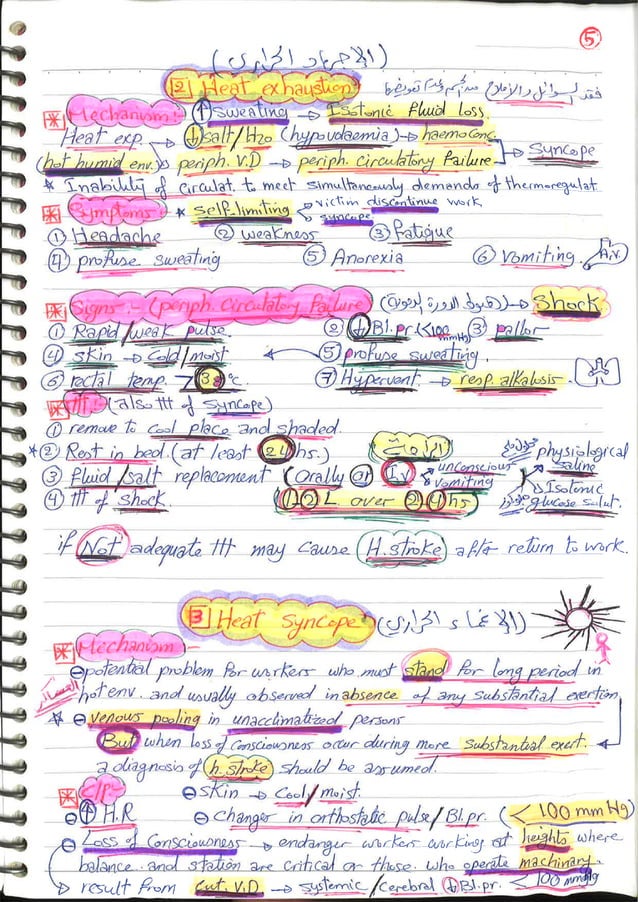 5
(الإجهاد الحراري)
2 Heat exhaustion
* Mechanism:- ↑ sweating → Isotonic fluid loss.
Heat exp. → ↓ salt/H2O (hypovolaemia) → haemoconc.
(hot humid env.) periph. V.D → periph. circulatory failure → syncope
* Inability of circulat. to meet simultaneously demands of thermoregulat
* Symptoms:- * self-limiting → victim discontinue work
syncope
① Headache ② weakness ③ Fatigue
④ profuse sweating ⑤ Anorexia ⑥ Vomiting.
* Signs:- (periph. circulatory failure) → Shock
① Rapid/weak pulse ② ↓ Bl.pr (<100 mmHg) ③ pallor
④ skin → Cold/moist ← ⑤ profuse sweating.
⑥ rectal temp. > 38°c ⑦ Hypervent → resp. alkalosis.
* ttt:- (also ttt of syncope)
① remove to cool place and shaded.
* ② Rest in bed. (at least 24 hs.)
③ Fluid/salt replacement (Orally or I.V → unconscious vomiting) → physiological saline
④ ttt of shock. ①② L over 24 hs → Isotonic glucose solut.
if Not adequate ttt may cause H.stroke after return to work.
3 Heat syncope (الإغماء الحراري)
* Mechanism:-
⊖ potential problem for workers who must stand for long period in
hot env. and usually observed in absence of any substantial exertion
* ⊖ venous pooling in unacclimatized persons
But when loss of consciousness occur during more substantial exert.
a diagnosis of h.stroke should be assumed.
* C/P:- ⊖ skin → Cool/moist.
⊖ ↑ H.R ⊖ changes in orthostatic pulse/Bl.pr. (<100 mm Hg)
⊖ Loss of Consciousness → endanger workers working at heights where
balance and station are critical or those who operate machinary.
→ result from cut. V.D → systemic/cerebral ↓ Bl.pr. ≤ 100 mmHg